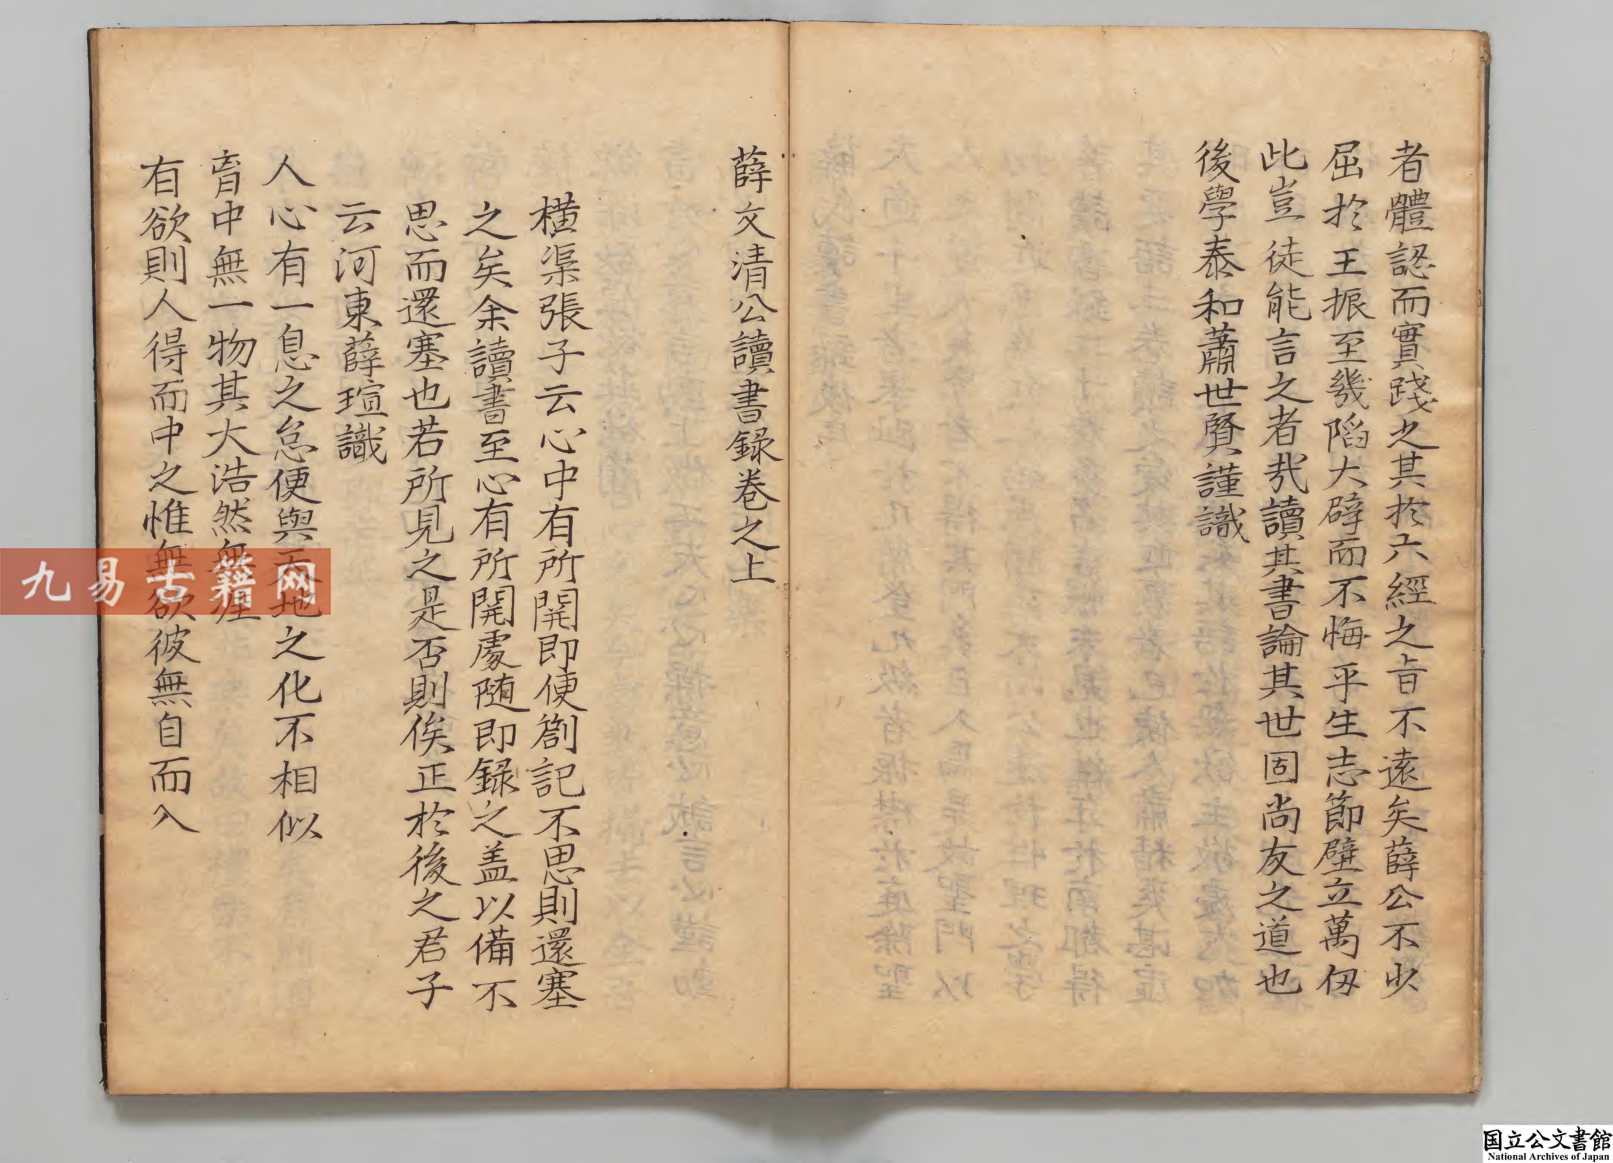 者體認而實踐之其扵六經之㫖不遠矣薛公不少
屈扵王振至幾陷大辟而不悔平生志節壁立萬仞
此豈徒能言之者㢤讀其書論其世固尚友之道也
後學泰和蕭世賢謹識
薛文清公讀書録卷之上
橫渠張子云心中有所開即便劄記不思則還塞
之矣余讀書至心有所開處随即録之盖以備不
思而還塞也若所見之是否則俟正扵後之君子
云河東薛瑄識
人心有一息之怠便與天地之化不相似
胷中無一物其大浩然無涯
有欲則人得而中之惟無欲彼無自而入
九易古籍网
国立公文書館
National Archives of Japan